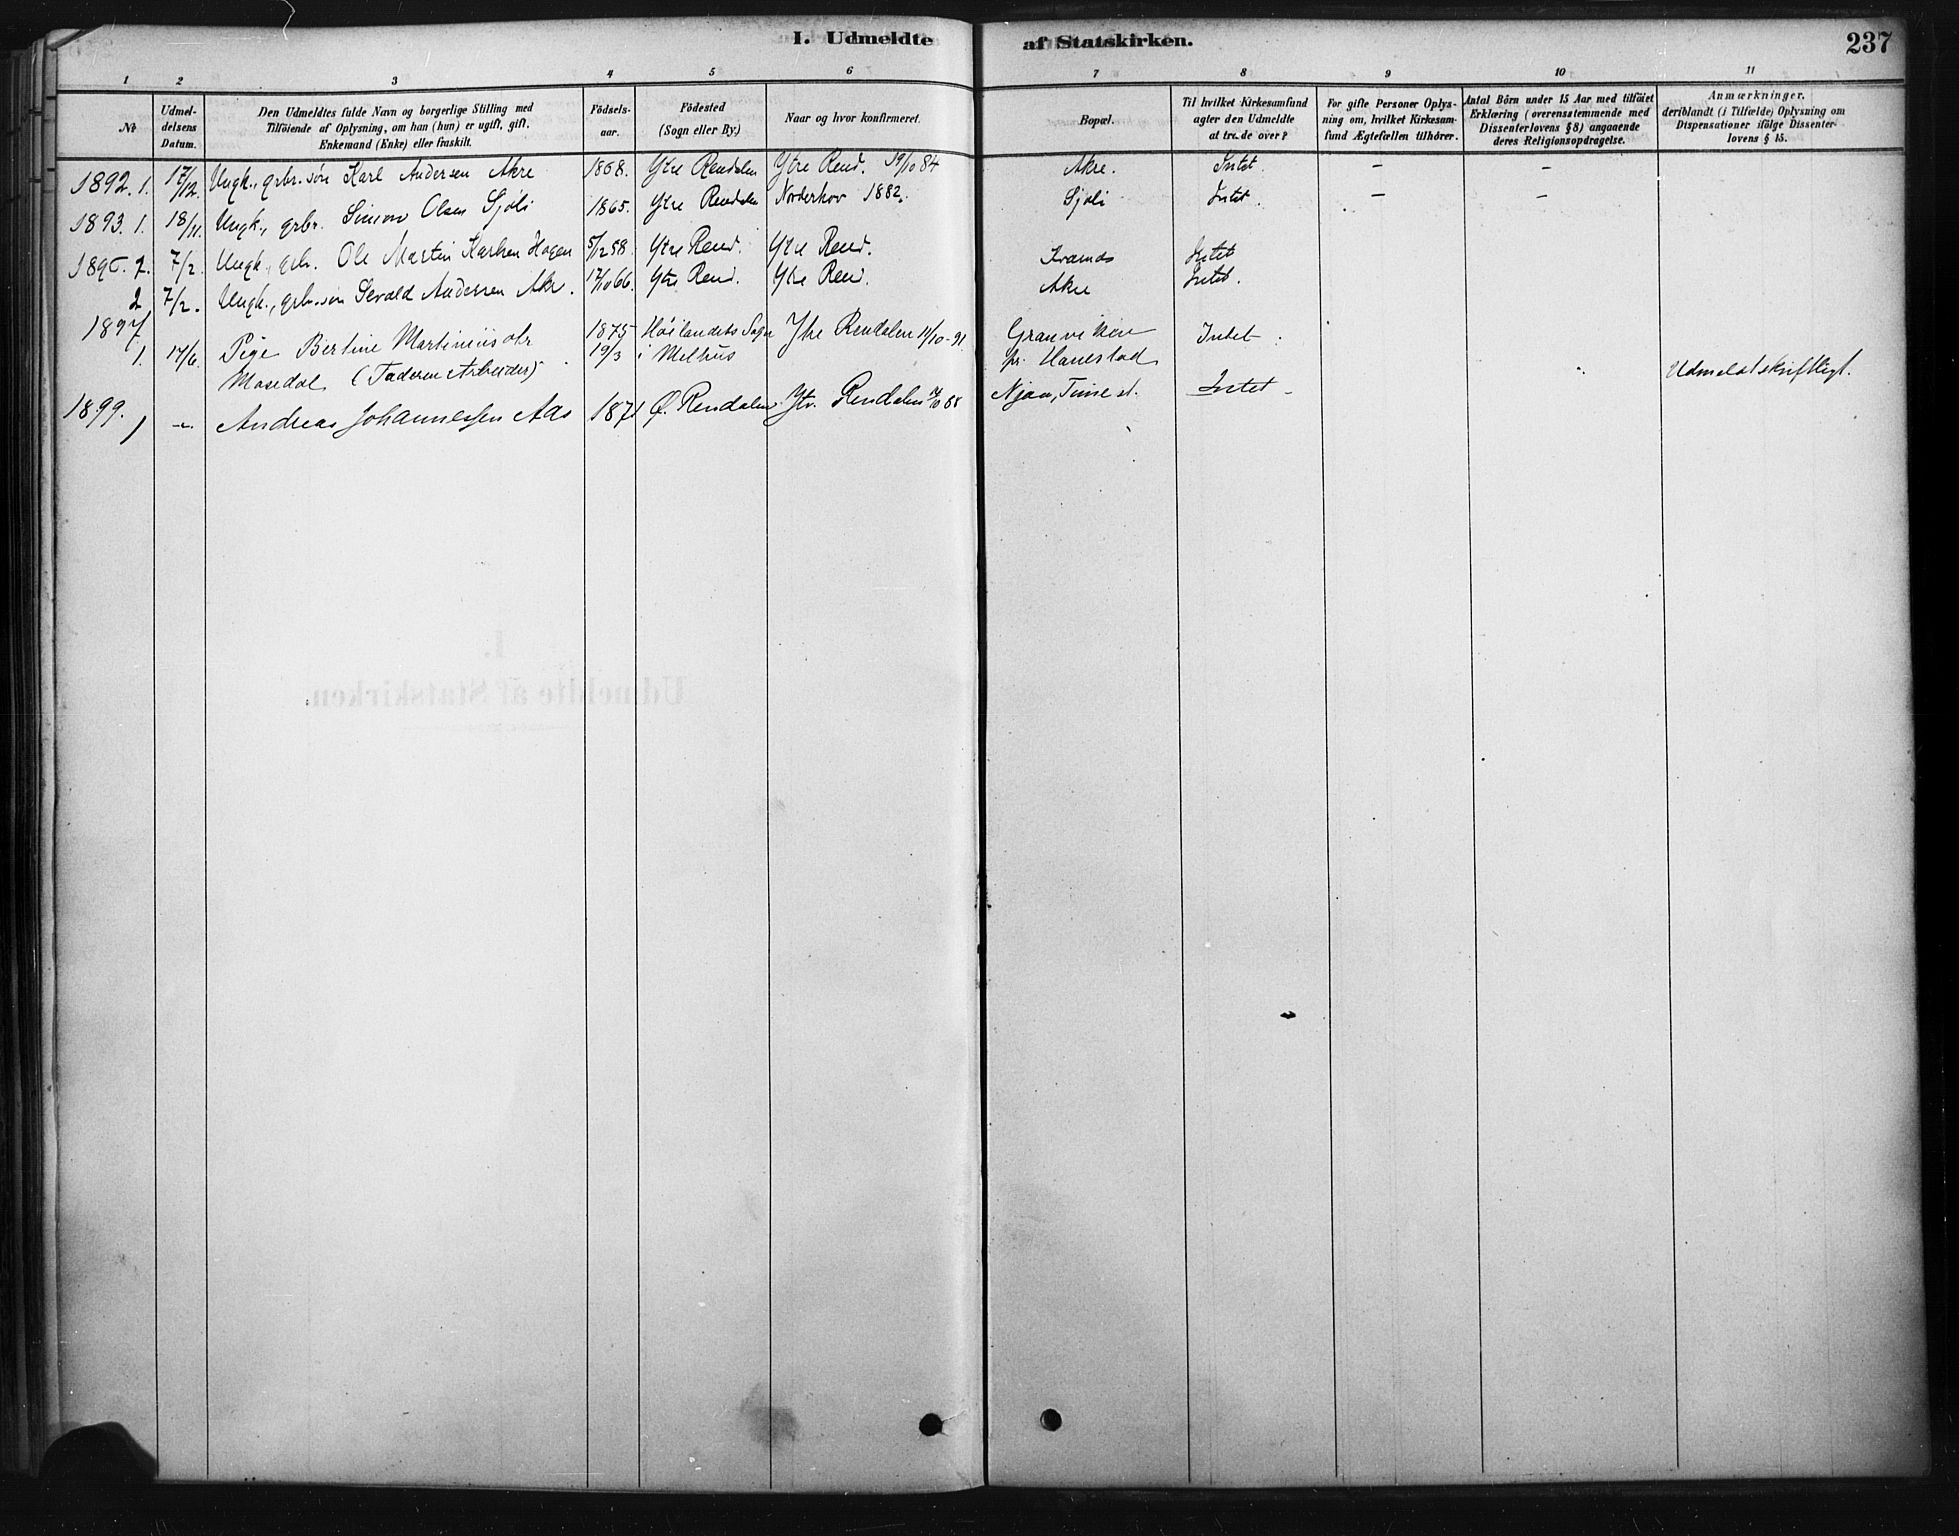 I. Udmeldte af Statskirken. 237
1 2 3 4 5 6 7 8 9 10 11
No
Udmel-
delsens
Datum.
Den Udmeldtes fulde Navn og borgerlige Stilling med
Tilföiende af Oplysning, om han (hun) er ugift, gift,
Enkemand (Enke) eller fraskilt.
Födsels-
aar.
Födested
(Sogn eller By.)
Naar og hvor konfirmeret.
Bopæl.
Til hvilket Kirkesamfund
agter den Udmeldte
at træde over?
For gifte Personer Oplys-
ning om, hvilket Kirkesam-
fund Ægtefællen tilhörer.
Antal Börn under 15 Aar med tilföiet
Erklæring (overensstemmende med
Dissenterlovens § 8) angaaende
deres Religionsopdragelse.
Anmærkninger,
deriblandt (i Tilfælde) Oplysning om
Dispensationer ifölge Dissenter-
lovens § 15.
1892. 1. 17/12. Ungk., grbr. søn Karl Andersen Akre 1868. Ytre Rendalen Ytre Rend. 19/10 84 Akre. Intet. - -
1893. 1. 18/11. Ungk., grbr. Simon Olsen Sjöli 1865. Ytre Rendalen Norderhov 1882. Sjöli Intet. - -
7/2. Ungk., grbr. Ole Martin Karlsen Hagen 5/12 58. Ytre Rend. Ytre Rend. Intet
2 7/2. Ungk., grbr. søn Sevald Andersen Akre. 17/10 66. Ytre Rend. Ytre Rend. Akre Intet.
1897
1. 17/6. Pige Bertine Martiniusdtr 1875 Höilandets Sogn Ytre Rendalen 11/10-91 Granviken Intet.
Mosedal (Faderen Arbeider) 19/3 i Melhus pr. Hanestad Udmeldt skriftligt.
1899. 1 Andreas Johannessen Aas 1871 Ø. Rendalen Ytr. Rendalen 88 Time st. Intet -
I.
Udmeldte af Statskirken.